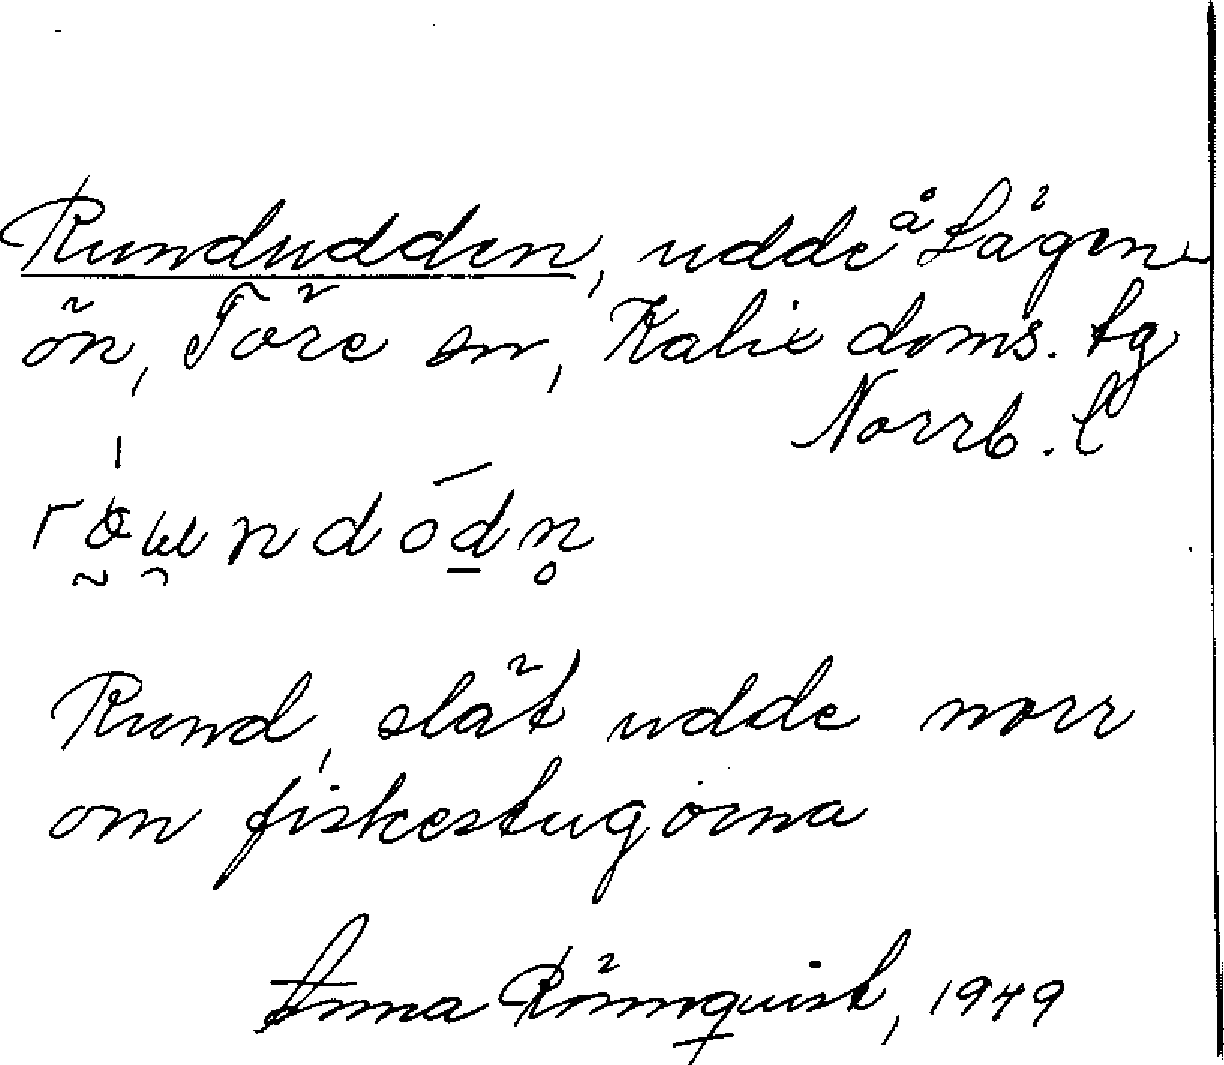 Rundudden, udde å Lägen-
ön, Töre sn, Kalix doms. tg
Norrb. l
Rund, slät udde norr
om fiskestugorna
Anna Rönnquist, 1949